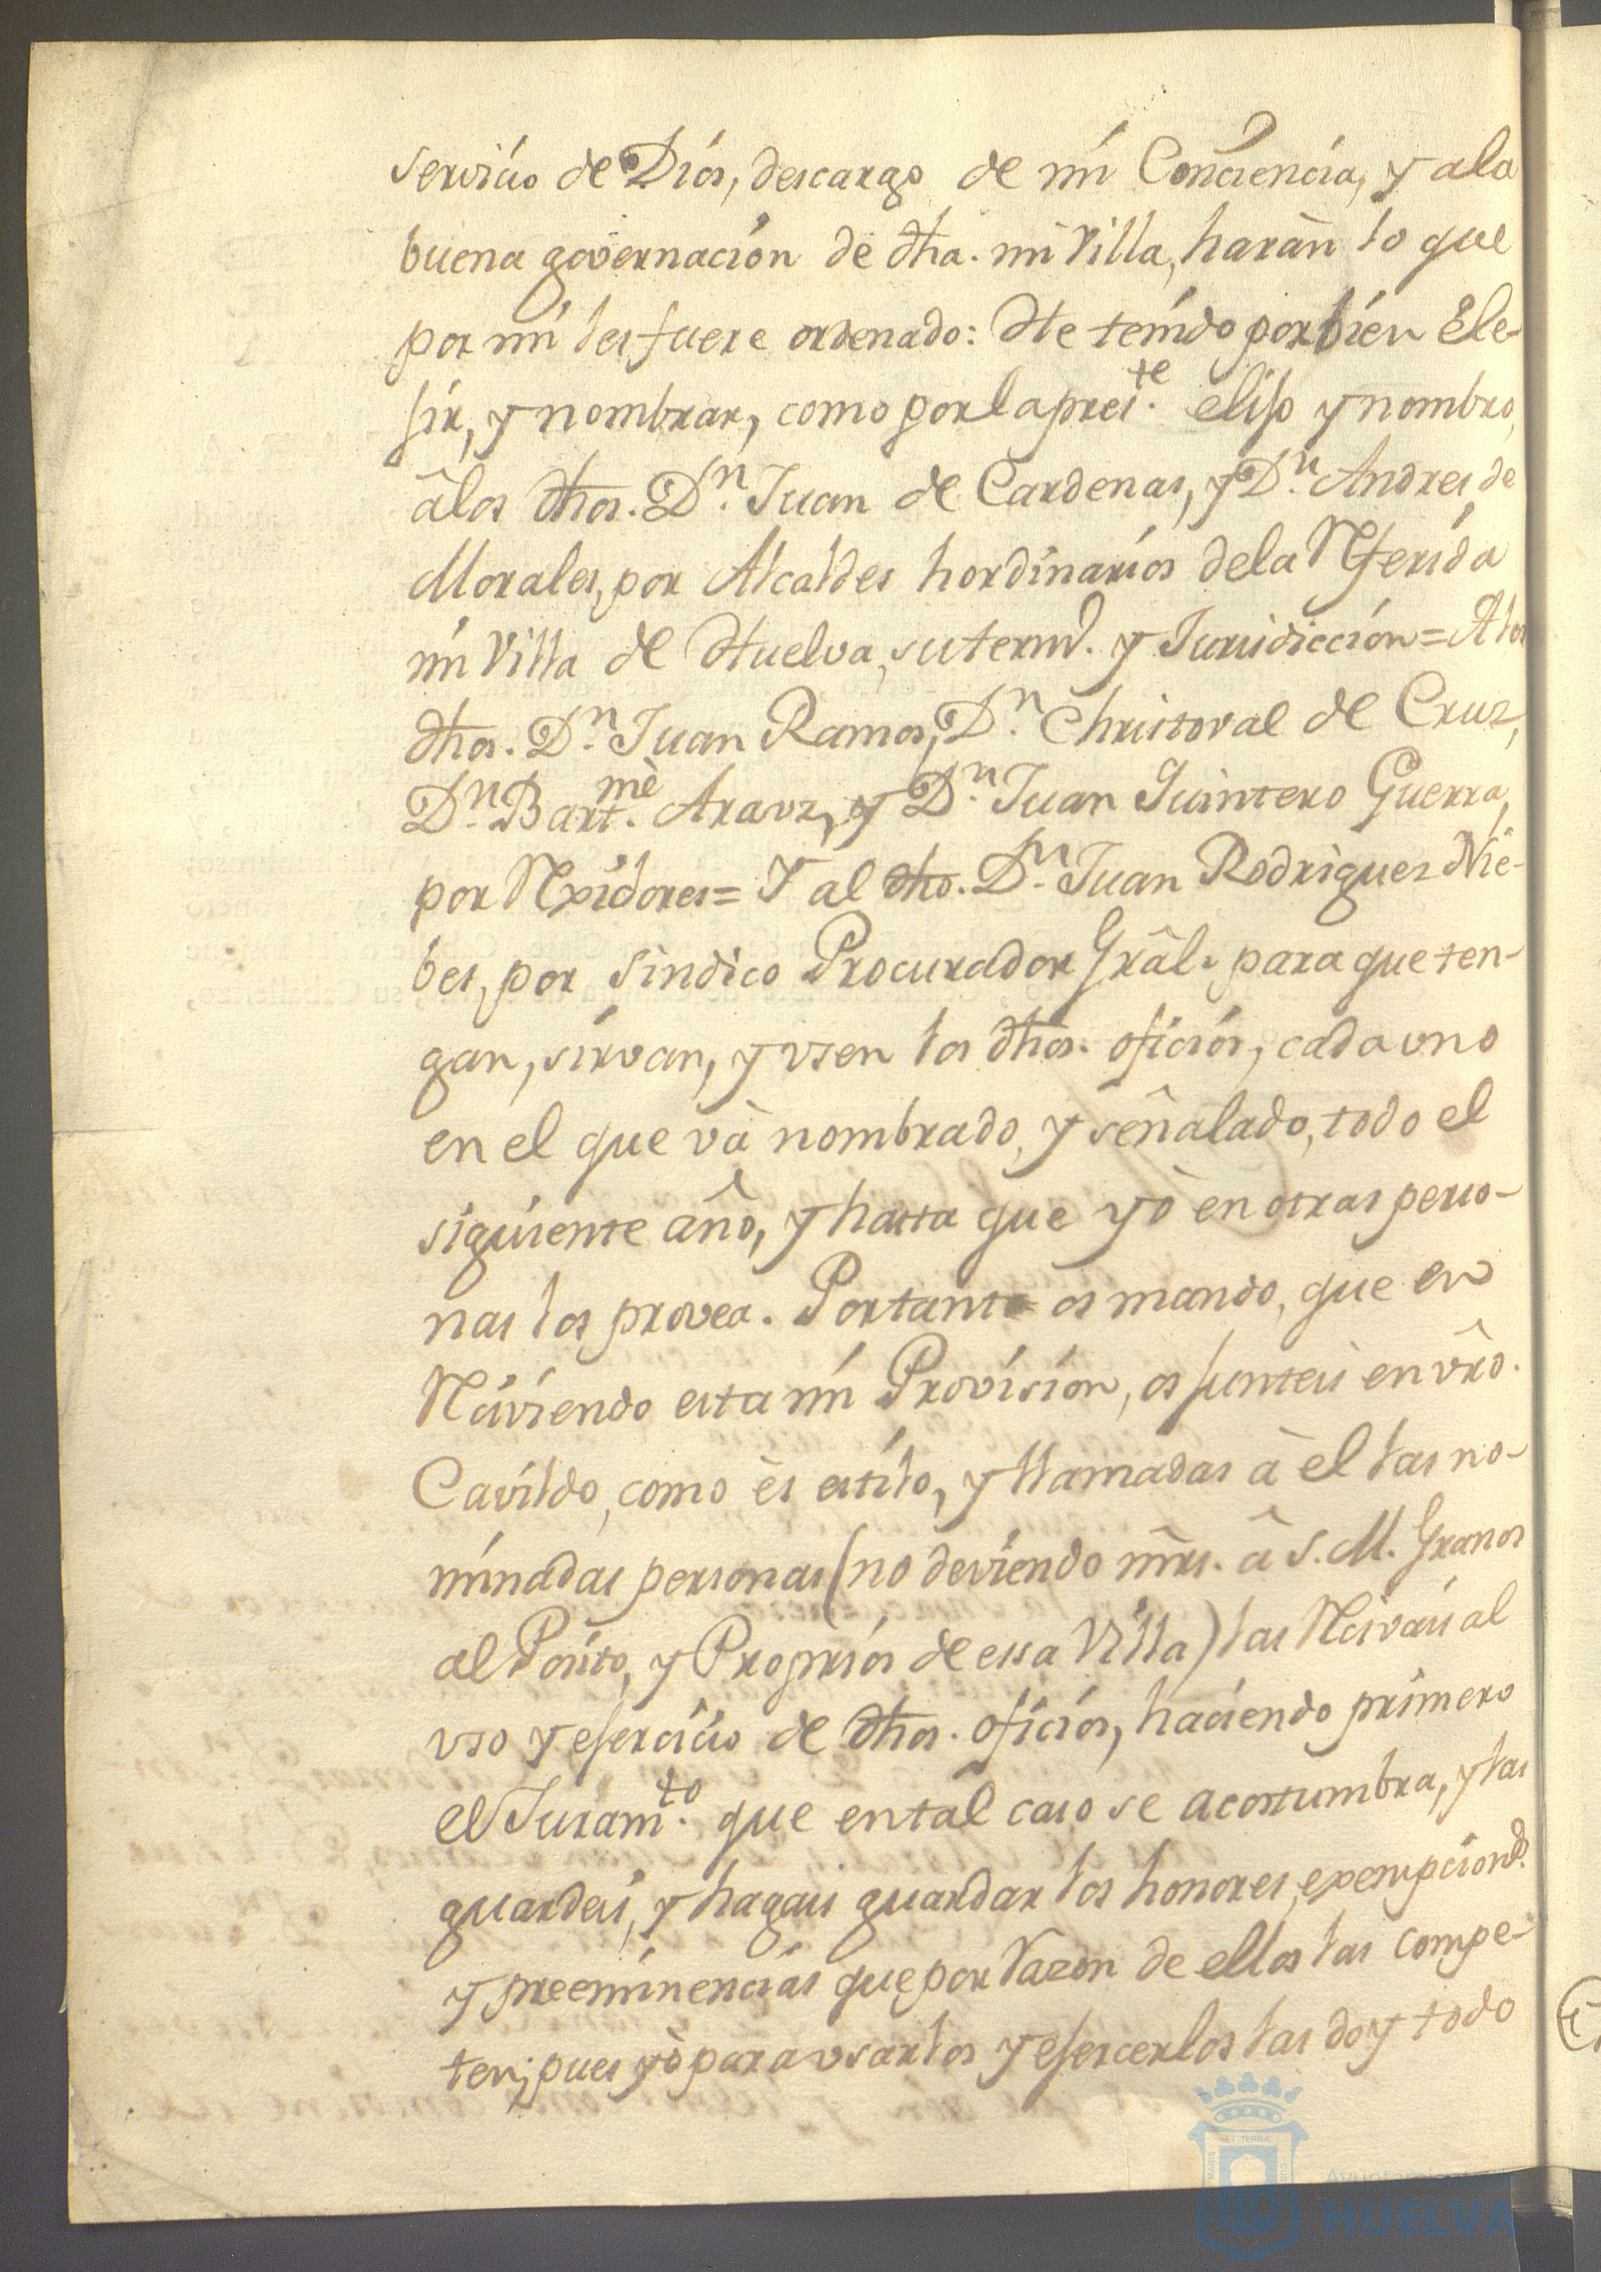 servicio de Dios, descargo de mi Conciencia, y ala
buena governacion de dha. mi Villa, haràn lo que
por mi les fuere ordenado: He tenido por bien Ele-
jir, y nombrar, como por la preste. elijo y nombro,
âlos dhos. Dn. Juan de Cardenas, y Dn. Andres de
Morales, por Alcaldes hordinarios dela Referida
mi Villa de Huelva, su termo. y Jurisdicción = A los
dhos. Dn. Juan Ramos, Dn. Christoval de Cruz,
Dn. Bartmè. Arauz, y Dn. Juan Quintero Guerra,
por Rexidores = Y al dho. Dn. Juan Rodriguez Nie-
bes, por Sindico Procurador Grâl. para que ten-
gan, sirvan, y vsen los dhos. oficios, cada vno
en el que và nombrado, y señalado, todo el
siguiente año, y hasta que yò en otras perso-
nas los provea. Portanto os mando, que en
Reciviendo esta mi Provision, os junteis en vrô.
Cavildo, como ès estilo, y llamadas à el las no-
minadas personas (no deviendo mrs. â S. M. Granos
al Posito, y Proprios de essa Villa) las Recivais al
vso y ejercicio de dhos. oficios, haciendo primero
el Juramto. que en tal caso se acostumbra, y las
guardeis, y hagais guardar los honores, exempciones.
y preeminencias que por Razon de ellos las compe-
ten; pues yò para vsarlos y ejercerlos las doy todo
Ayuntamiento de
HUELVA